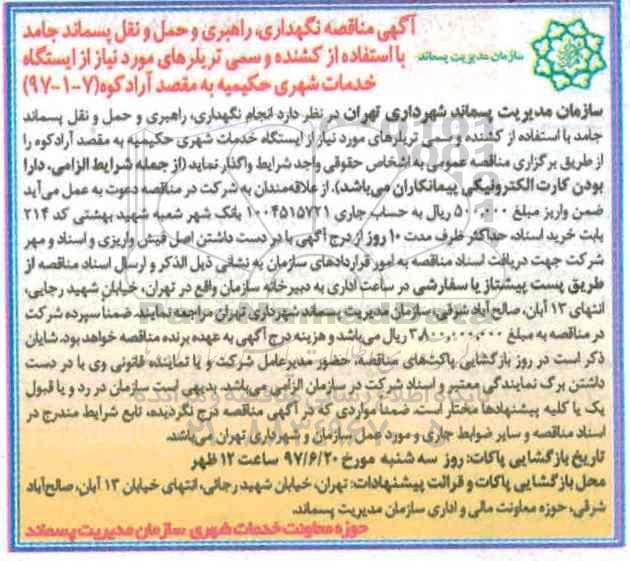 آگهی مناقصه نگهداری، راهبری و حمل و نقل پسماند جامد
با استفاده از کشنده و سمی تریلرهای مورد نیاز از ایستگاه
خدمات شهری حکیمیه به مقصد آرادکوه (۷-۱-۹۷)
سازمان مدیریت پسماند
سازمان مدیریت پسماند شهرداری تهران در نظر دارد انجام نگهداری، راهبری و حمل و نقل پسماند
جامد با استفاده از کشنده و سمی تریلرهای مورد نیاز از ایستگاه خدمات شهری حکیمیه به مقصد آرادکوه را
از طریق برگزاری مناقصه عمومی به اشخاص حقوقی واجد شرایط واگذار نماید (از جمله شرایط الزامی، دارا
بودن کارت الکترونیکی پیمانکاران می‌باشد). از علاقه‌مندان به شرکت در مناقصه دعوت به عمل می‌آید
ضمن واریز مبلغ ۵۰۰,۰۰۰ ریال به حساب جاری ۱۰۰۴۵۱۵۷۲۱ بانک شهر شعبه شهید بهشتی کد ۲۱۴
بابت خرید اسناد، حداکثر ظرف مدت ۱۰ روز از درج آگهی با در دست داشتن اصل فیش واریزی و اسناد و مهر
شرکت جهت دریافت اسناد مناقصه به امور قراردادهای سازمان به نشانی ذیل الذکر و ارسال اسناد مناقصه از
طریق پست پیشتاز یا سفارشی در ساعت اداری به دبیرخانه سازمان واقع در تهران، خیابان شهید رجایی،
انتهای ۱۳ آبان، صالح آباد شرقی، سازمان مدیریت پسماند شهرداری تهران مراجعه نمایند. ضمناً سپرده شرکت
در مناقصه به مبلغ ۳,۸۰۰,۰۰۰,۰۰۰ ریال می‌باشد و هزینه درج آگهی به عهده برنده مناقصه خواهد بود. شایان
ذکر است در روز بازگشایی پاکت‌های مناقصه، حضور مدیرعامل شرکت و یا نماینده قانونی وی با در دست
داشتن برگ نمایندگی معتبر و اسناد شرکت در سازمان الزامی می‌باشد. بدیهی است سازمان در رد و یا قبول
یک یا کلیه پیشنهادها مختار است. ضمناً مواردی که در آگهی مناقصه درج نگردیده، تابع شرایط مندرج در
اسناد مناقصه و سایر ضوابط جاری و مورد عمل سازمان و شهرداری تهران می‌باشد.
تاریخ بازگشایی پاکات: روز سه شنبه مورخ ۹۷/۶/۲۰ ساعت ۱۲ ظهر
محل بازگشایی پاکات و قرائت پیشنهادات: تهران، خیابان شهید رجائی، انتهای خیابان ۱۳ آبان، صالح‌آباد
شرقی، حوزه معاونت مالی و اداری سازمان مدیریت پسماند.
حوزه معاونت خدمات شهری سازمان مدیریت پسماند